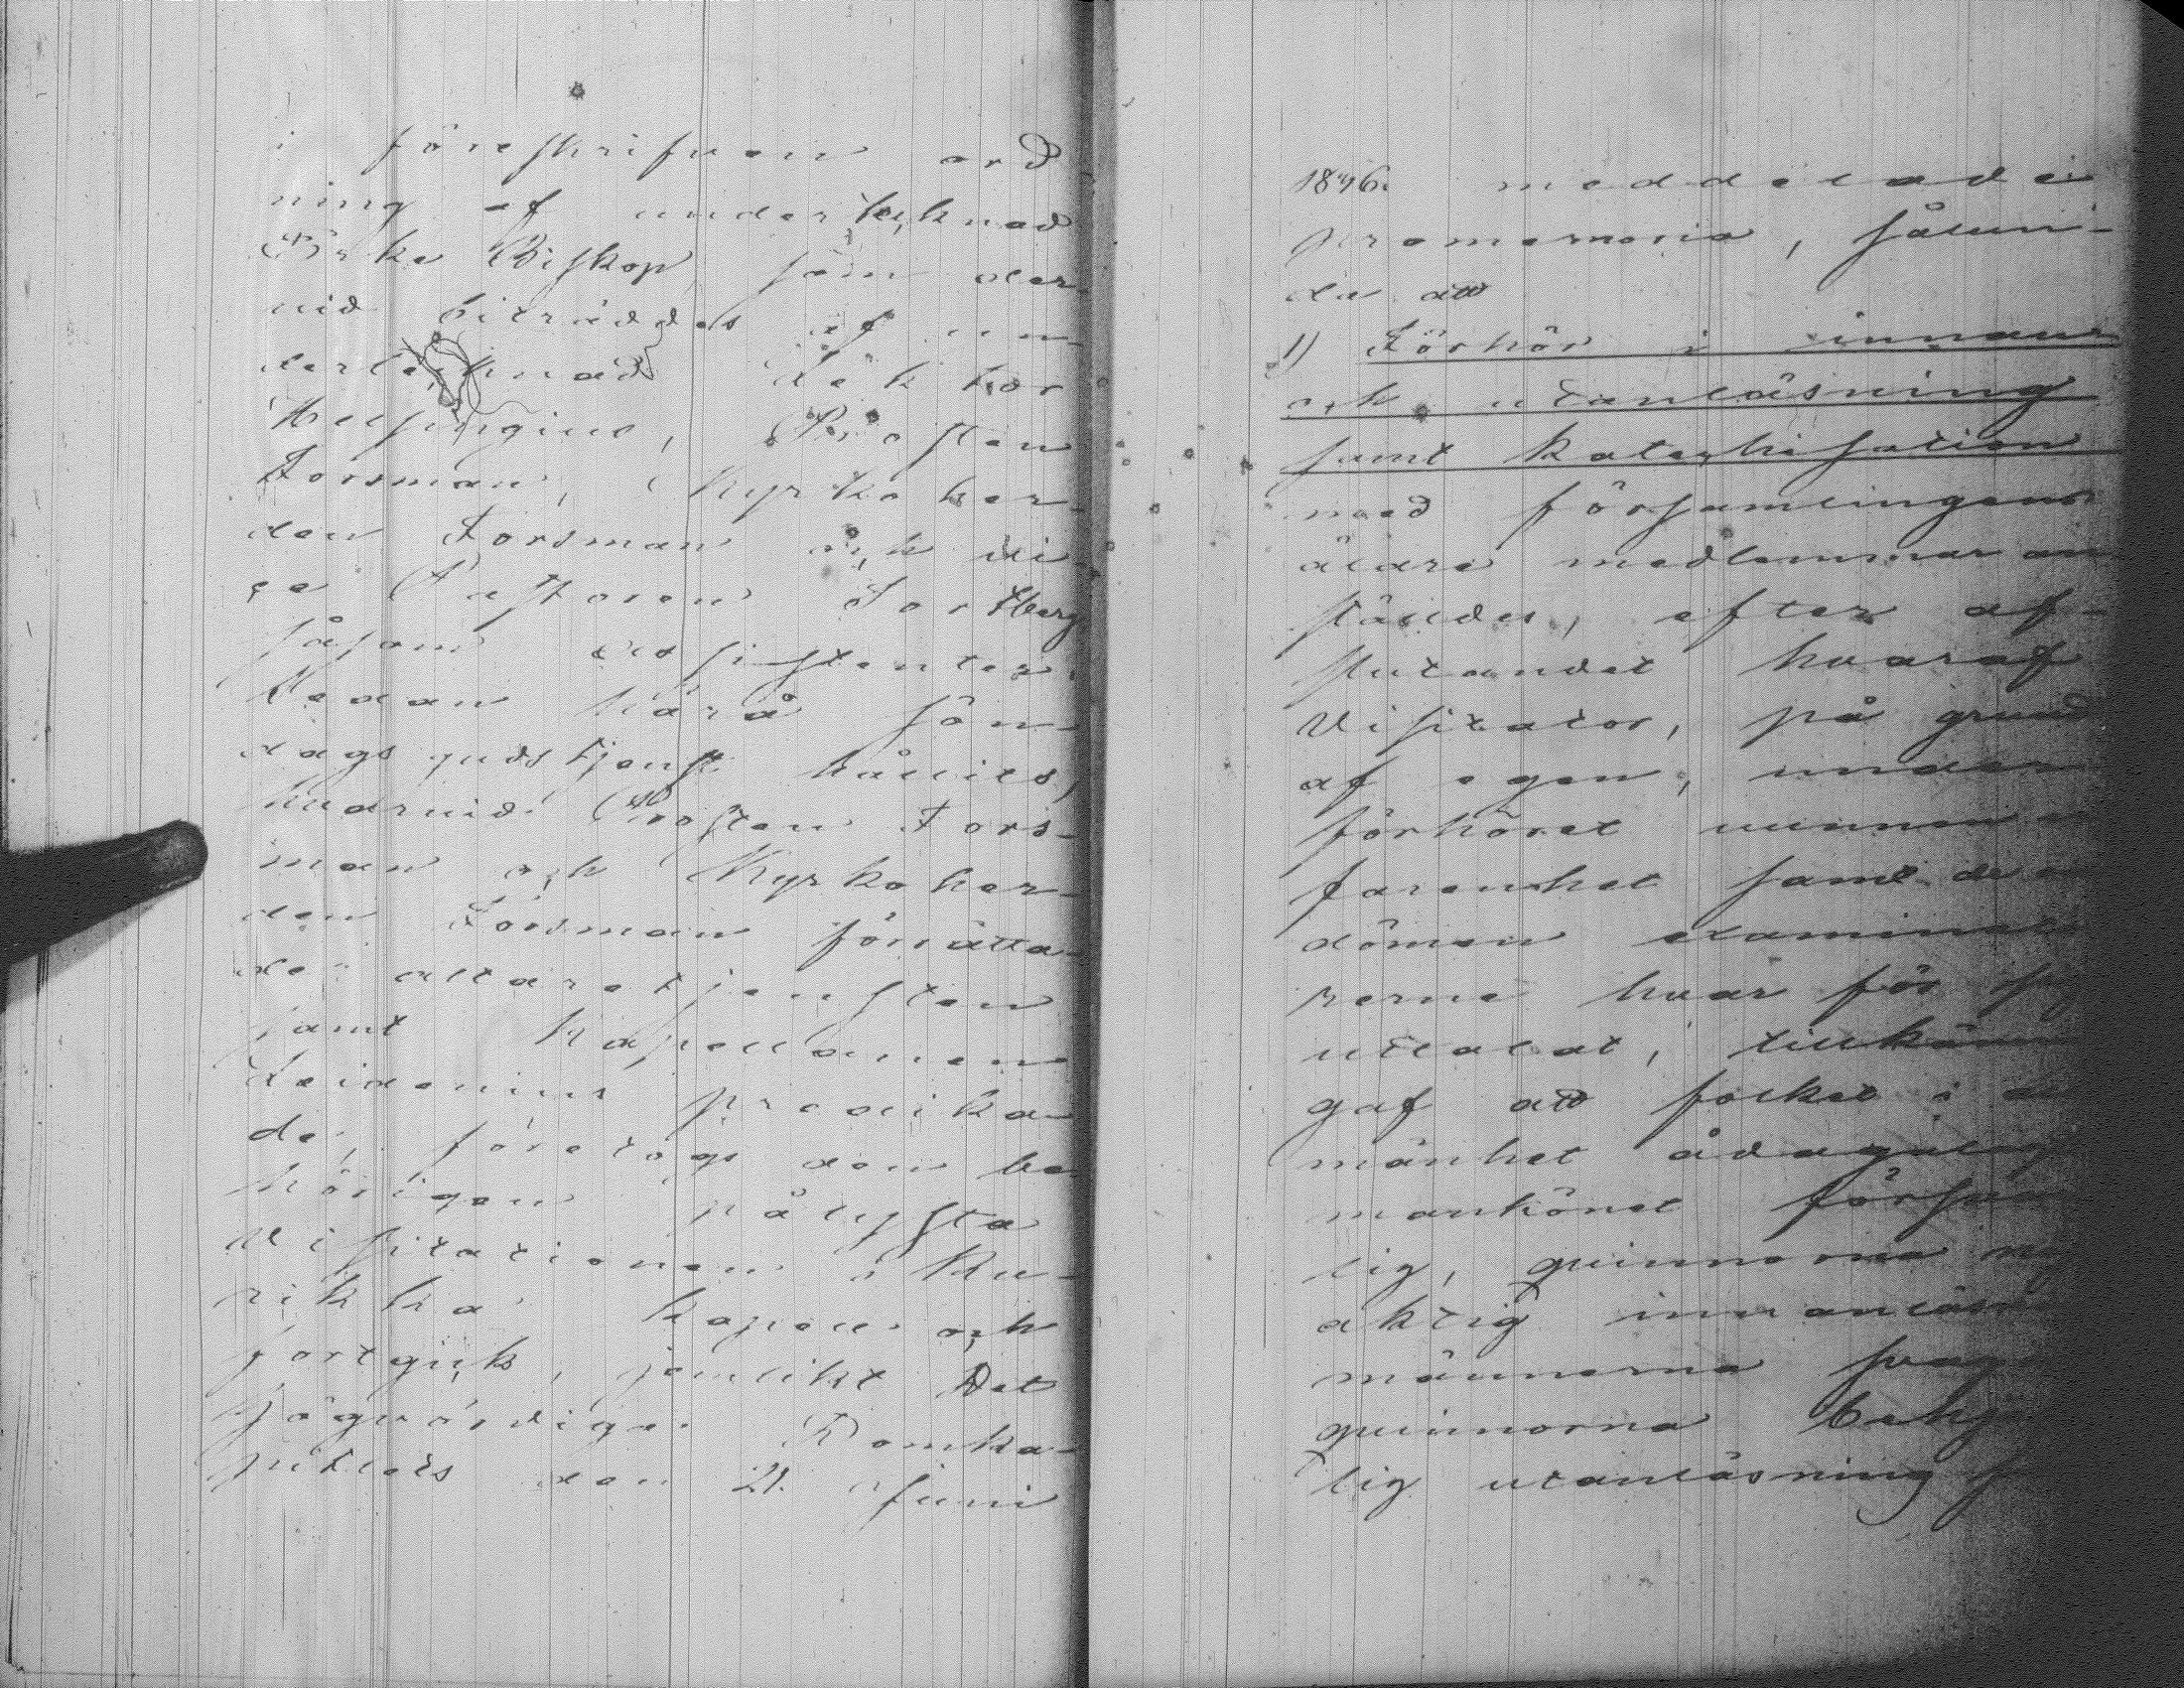 i föreskrifven ord
ning af undertecknad
Ärke Biskop, som der-
vid biträddes af un-
dertecknad Doktor
Helsingius, Prosten
Forsman, Kyrkoher-
den Forsman och vi
ce Pastoren Fortberg
såsom assistenter.
Sedan härå sön-
dagsgudstjenst hållits,
hvarvid Prosten Fors-
man och Kyrkoher-
den Forsman förrätta-
de altaretjensten
samt Kapellanen
predika-
de, företogs den be-
hörigen pålysta
visitationen i Ku-
rikka kapell och
fortgick, jemlikt Det
Högvördiga Domka-
pitlets den 21. Juni
1846. meddelade
promemoria, sålun-
da att
1) Förhör i innan-
och utanläsning
samt katechisation
med församlingens
äldre medlemmar an
ställdes, efter af-
slutandet hvaraf
Visitator, på grund
af egen, under
förhöret vunnen
farenhet samt de
dömen examinato
rerne hvar för s
uttalat, tillkänn
gaf att folket i
mänhet ådagalag
mankönet försv
lig, qvinnorna
aktig innanläsn
männerna svag
qvinnorna behj
lig utanläsning